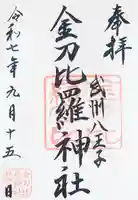 奉拝
武州八王子
金刀比羅神社
令和七年九月十五日